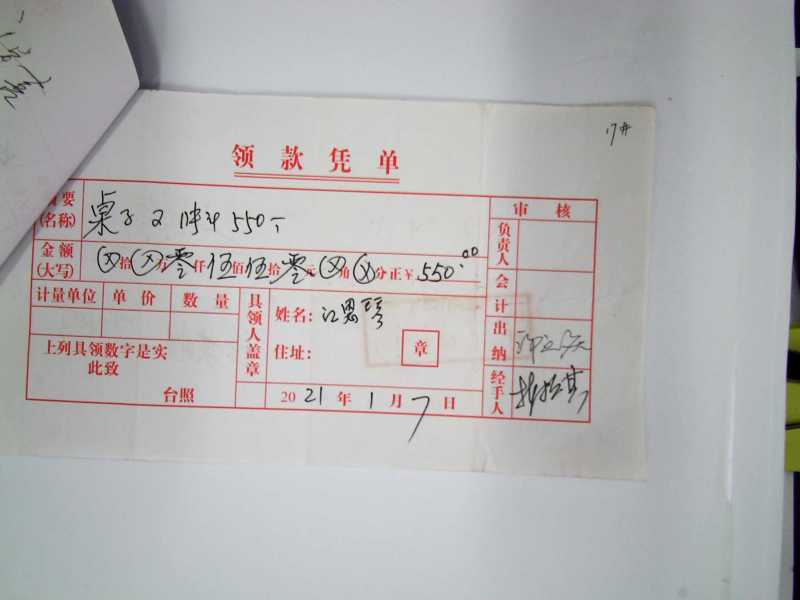 17#
领款凭单
摘要(名称) 桌子 550
审核
金额(大写) ⊗拾⊗万零仟伍佰伍拾零元⊗角⊗分正¥550.00
负责人
会计
计量单位 单价 数量
具领人盖章
姓名:江思琴
住址: 章
出纳
上列具领数字是实
此致
台照
2021年1月7日
经手人